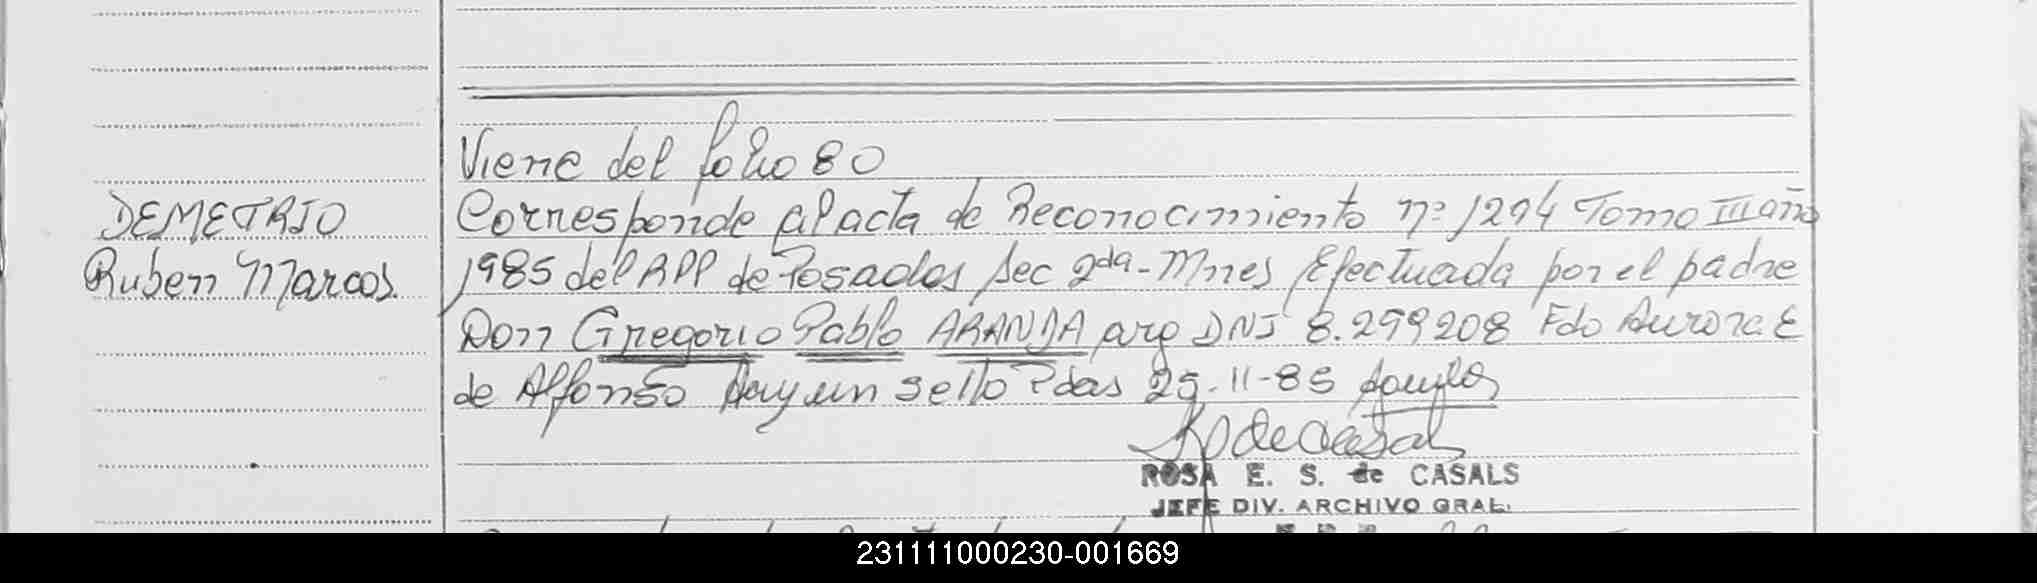 Viene del folio 80
DEMETRIO
Corresponde al acta de Reconocimiento nº 1294 Tomo III año
Ruben Marcos
1985 del RPP de Posadas Sec 2da - Mnes Efectuada por el padre
Don Gregorio Pablo ARANDA arg DNI 8.299208 Fdo Aurora E
de Alfonso Hay un sello Pdas 25-11-85
ROSA E. S. de CASALS
JEFE DIV. ARCHIVO GRAL.
231111000230-001669